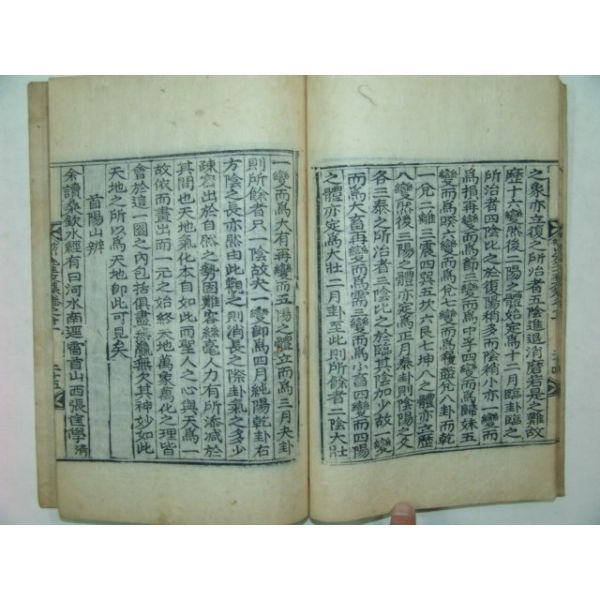 之象亦立復之所治者五陰進退消磨若是之難故
歷十六變然後二陽之體始定爲十二月臨卦臨之
所治者四陰比之於復陽稍多而陰稍小亦一變而
爲損再變而爲節三變而爲中孚四變而爲歸妹五
變而爲睽六變而爲兌七變而爲履遊兌八卦而乾
一兌二離三震四巽五坎六艮七坤八之體亦立歷
八變然後三陽之體亦定爲正月泰卦則陰陽之爻
各三泰之所治三陰比之於臨其陰加少故一變
而爲大畜再變而爲需三變而爲小畜四變而四陽
之體亦定爲大壯二月卦至此則所餘者二陰大壯
一變而爲大有再變而五陽之體立而爲三月夬卦
則所餘者只一陰故夬一變卽爲四月純陽乾卦右
方陰之長亦然由此觀之則消長之際卦氣之多少
疎密出於自然之勢固難容絲毫人力有所添減於
其間也天地氣化本自如此而聖人之心與天爲一
故依而畫出而一元之始終天地萬象萬化之理皆
會於這一圈之內包括俱盡無贏無欠其神妙如此
天地之所以爲天地卽此可見矣
首陽山辨
余讀桑欽水經有曰河水南逕雷首山西張